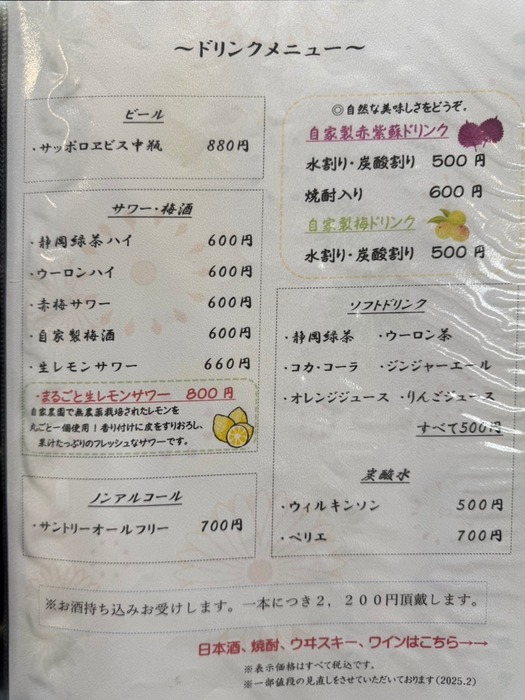 ～ドリンクメニュー～
ビール
・サッポロヱビス中瓶 880円
サワー・梅酒
・静岡緑茶ハイ 600円
・ウーロンハイ 600円
・赤梅サワー 600円
・自家製梅酒 600円
・生レモンサワー 660円
・まるごと生レモンサワー 800円
自家農園で無農薬栽培されたレモンを
丸ごと一個使用！香り付けに皮をすりおろし、
果汁たっぷりのフレッシュなサワーです。
ノンアルコール
・サントリーオールフリー 700円
◎自然な美味しさをどうぞ。
自家製赤紫蘇ドリンク
水割り・炭酸割り 500円
焼酎入り 600円
自家製梅ドリンク
水割り・炭酸割り 500円
ソフトドリンク
・静岡緑茶 ・ウーロン茶
・コカ・コーラ ・ジンジャーエール
・オレンジジュース ・りんごジュース
すべて500円
炭酸水
・ウィルキンソン 500円
・ペリエ 700円
※お酒持ち込みお受けします。一本につき2，200円頂戴します。
日本酒、焼酎、ウヰスキー、ワインはこちら→→
※表示価格はすべて税込です。
※一部値段の見直しをさせていただいております(2025.2)